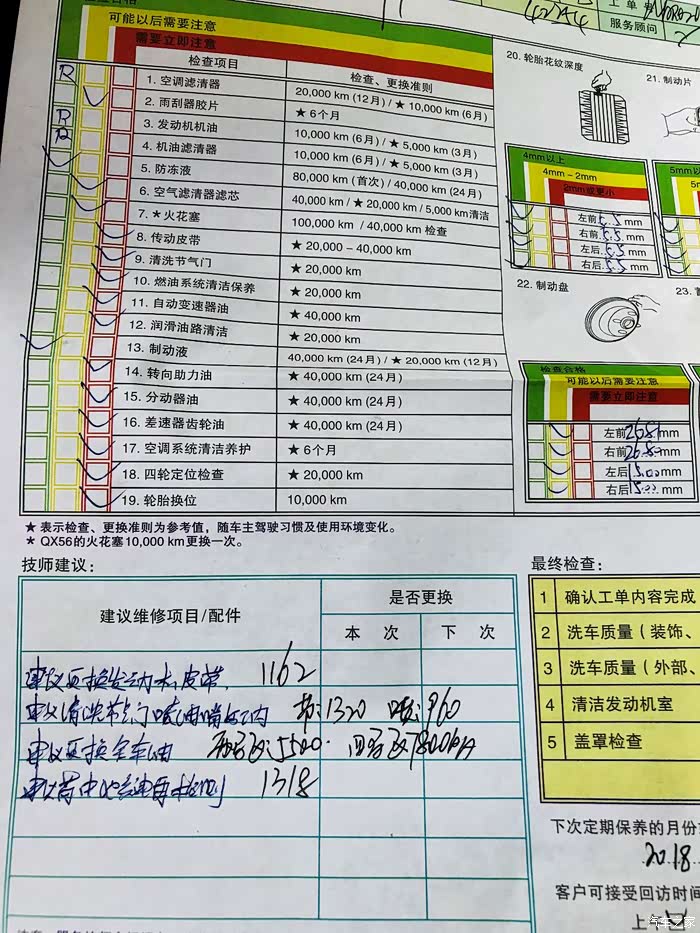 工单号
服务顾问
可能以后需要注意
需要立即注意
检查项目 检查、更换准则
R 1. 空调滤清器 20,000 km (12月) / ★ 10,000 km (6月)
2. 雨刮器胶片 ★ 6个月
R 3. 发动机机油 10,000 km (6月) / ★ 5,000 km (3月)
R 4. 机油滤清器 10,000 km (6月) / ★ 5,000 km (3月)
5. 防冻液 80,000 km (首次) / 40,000 km (24月)
6. 空气滤清器滤芯 40,000 km / ★ 20,000 km / 5,000 km清洁
7. *火花塞 100,000 km / 40,000 km 检查
8. 传动皮带 ★ 20,000 – 40,000 km
9. 清洗节气门 ★ 20,000 km
10. 燃油系统清洁保养 ★ 20,000 km
11. 自动变速器油 ★ 40,000 km
12. 润滑油路清洁 ★ 20,000 km
13. 制动液 40,000 km (24月) / ★ 20,000 km (12月)
14. 转向助力油 ★ 40,000 km (24月)
15. 分动器油 ★ 40,000 km (24月)
16. 差速器齿轮油 ★ 40,000 km (24月)
17. 空调系统清洁养护 ★ 6个月
18. 四轮定位检查 ★ 20,000 km
19. 轮胎换位 10,000 km
★ 表示检查、更换准则为参考值，随车主驾驶习惯及使用环境变化。
* QX56的火花塞10,000 km更换一次。
20. 轮胎花纹深度
21. 制动片
4mm以上
4mm – 2mm
2mm或更小
5mm以
左前 5.5 mm
右前 5.5 mm
左后 5.5 mm
右后 5.5 mm
22. 制动盘
23.
检查合格
可能以后需要注意
需要立即注意
左前 mm
右前 mm
左后 15.00 mm
右后 15.00 mm
技师建议：
建议维修项目/配件 是否更换
本 次 下 次
建议更换发动机皮带 1162
建议清洗节气门喷油嘴 节:1320 960
建议更换全车油
1318
最终检查：
1 确认工单内容完成
2 洗车质量（装饰、
3 洗车质量（外部、
4 清洁发动机室
5 盖罩检查
下次定期保养的月份
2018
客户可接受回访时间
上午
汽车之家